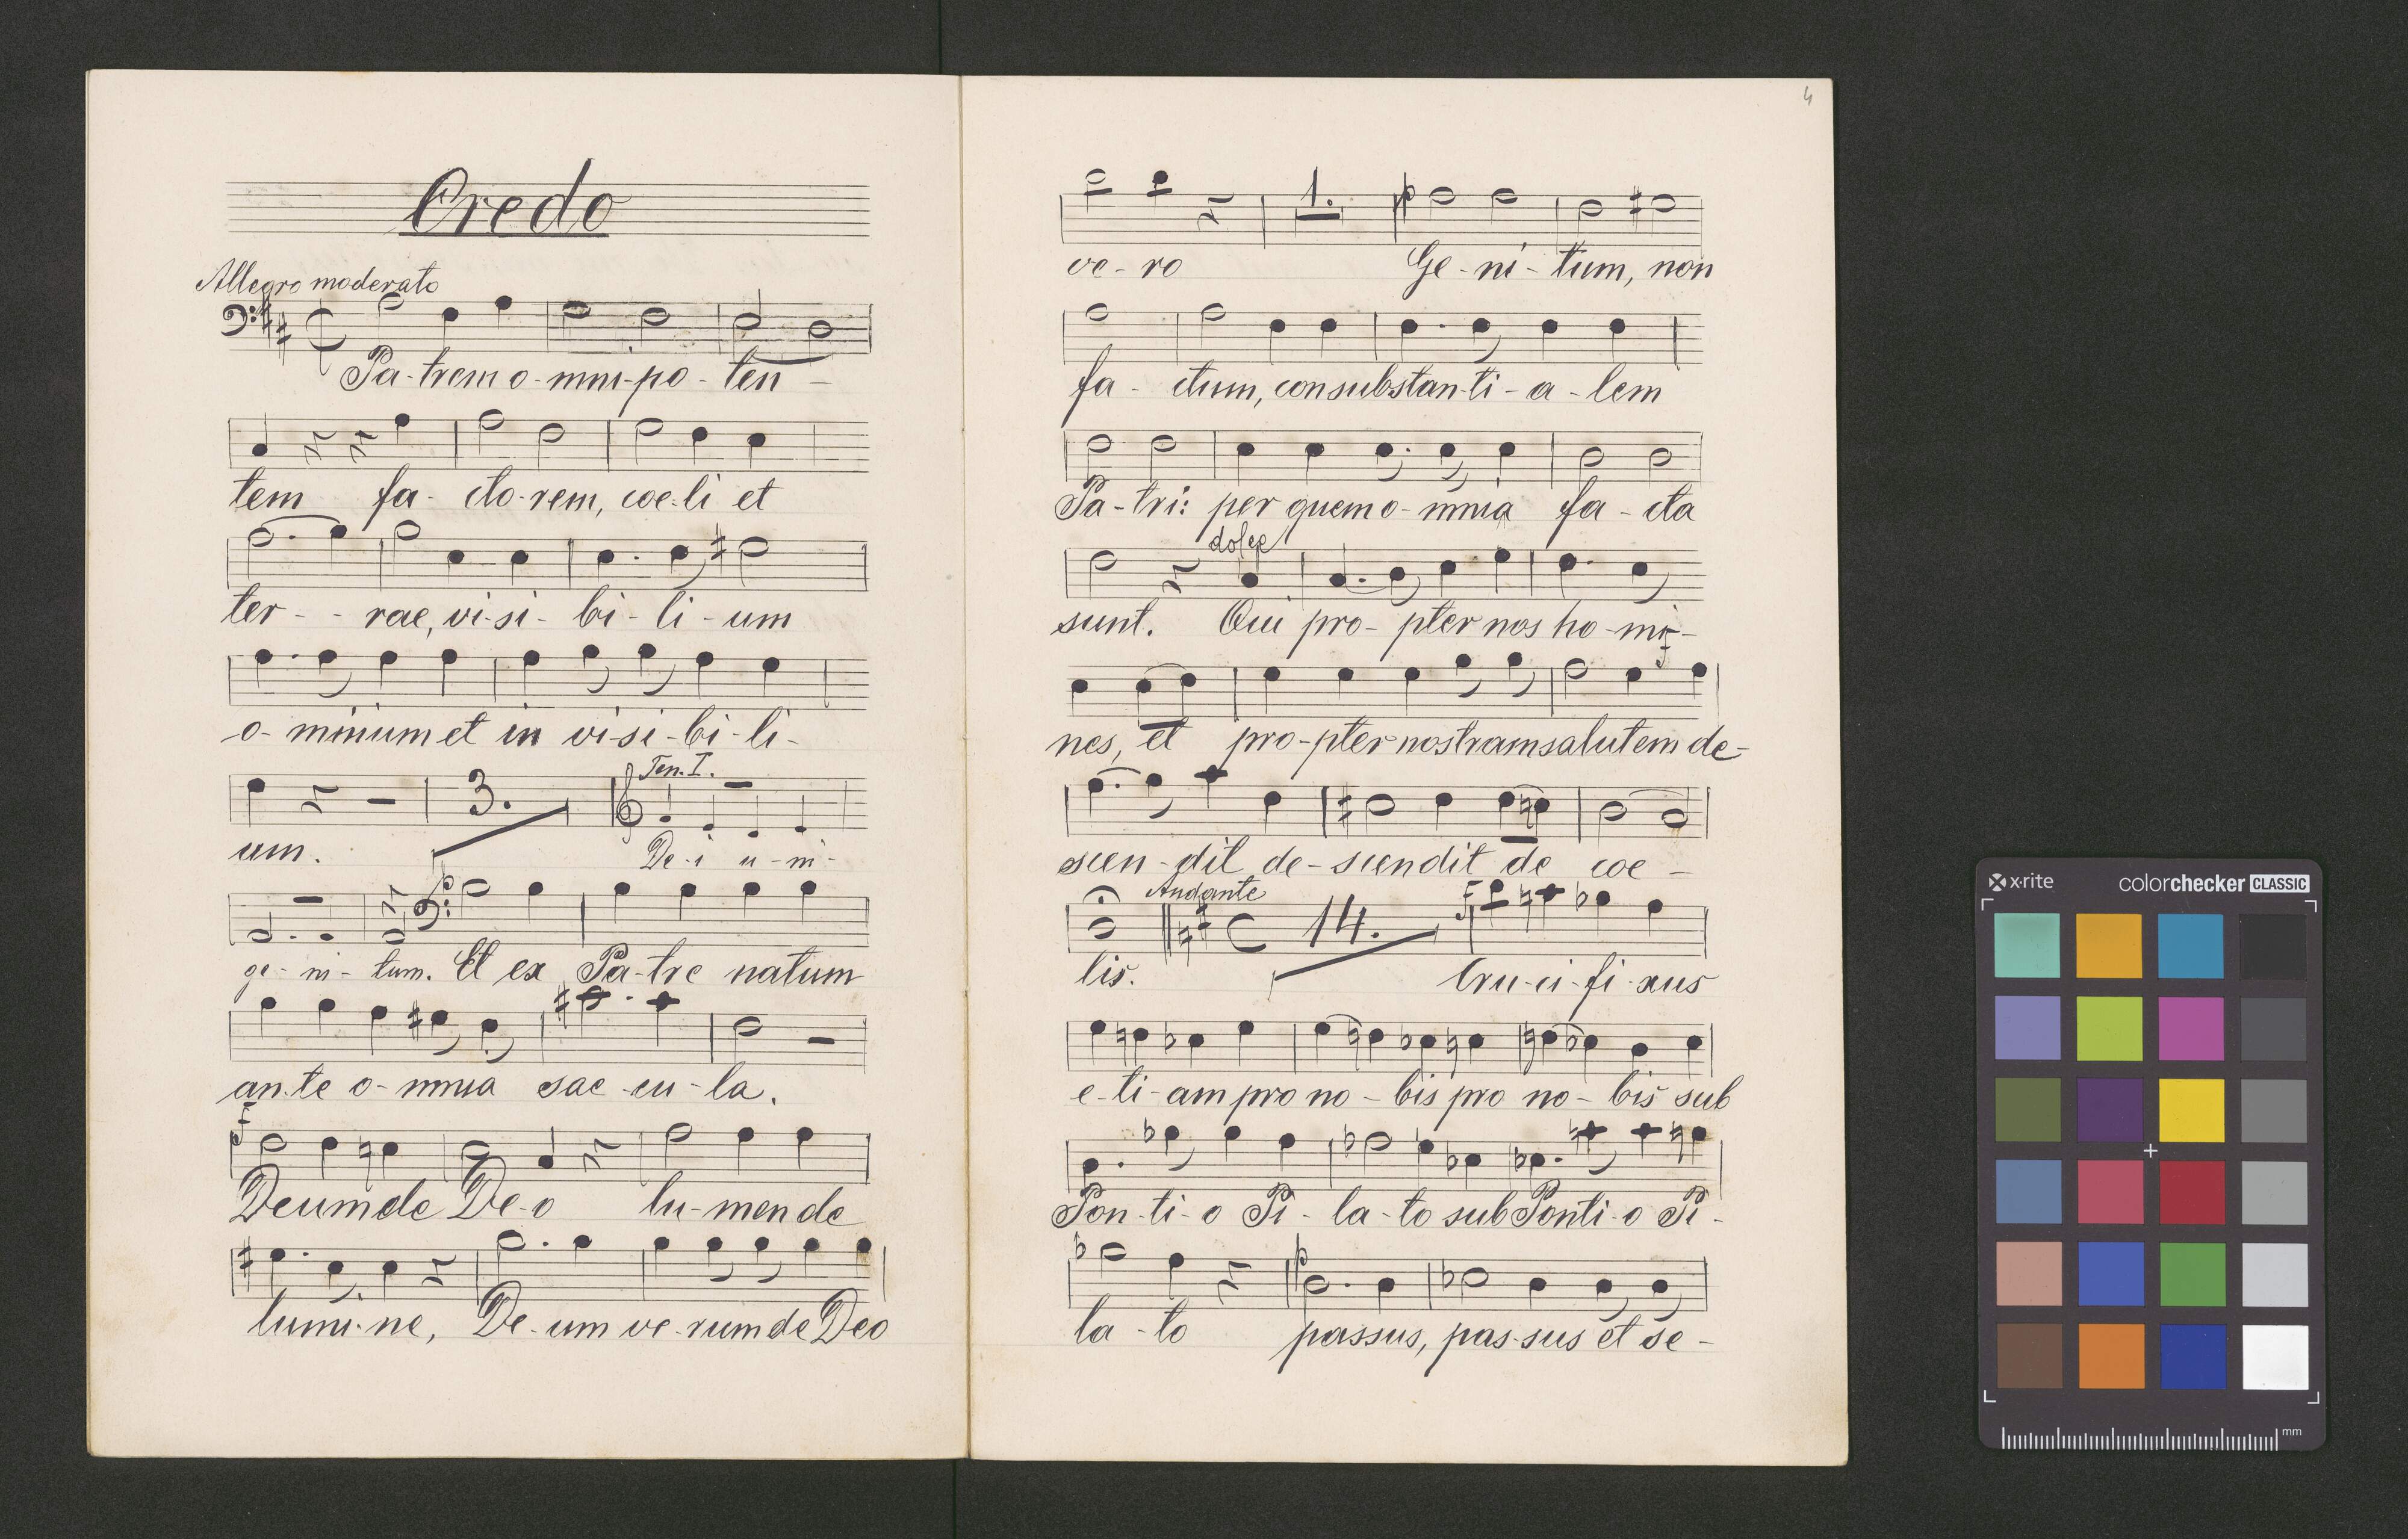 Credo
Allegro moderato
Pa-trem o-mni-po-ten-
tem fa-cto-rem, coe-li et
ter - - rae, vi-si-bi-li-um
o-mnium et in vi-si-bi-li-
3. Ten. I.
um. De-i u-ni-
p
ge-ni-tum. Et ex Pa-tre natum
an-te o-mnia sae-cu-la.
f
Deum de De-o lu-men de
lumi-ne, De-um ve-rum de Deo
4
1. p
ve-ro Ge-ni-tum, non
fa-ctum, consubstan-ti-a-lem
Pa-tri: per quem o-mnia fa-cta
dolce
sunt. Qui pro-pter nos ho-mi-
f
nes, et pro-pter nostram salutem de-
scen-dit de-scendit de coe-
Andante
14. f
lis. Cru-ci-fi-xus
e-ti-am pro no-bis pro no-bis sub
Pon-ti-o Pi-la-to sub Ponti-o Pi-
p
la-to passus, pas-sus et se-
x-rite colorchecker CLASSIC
mm